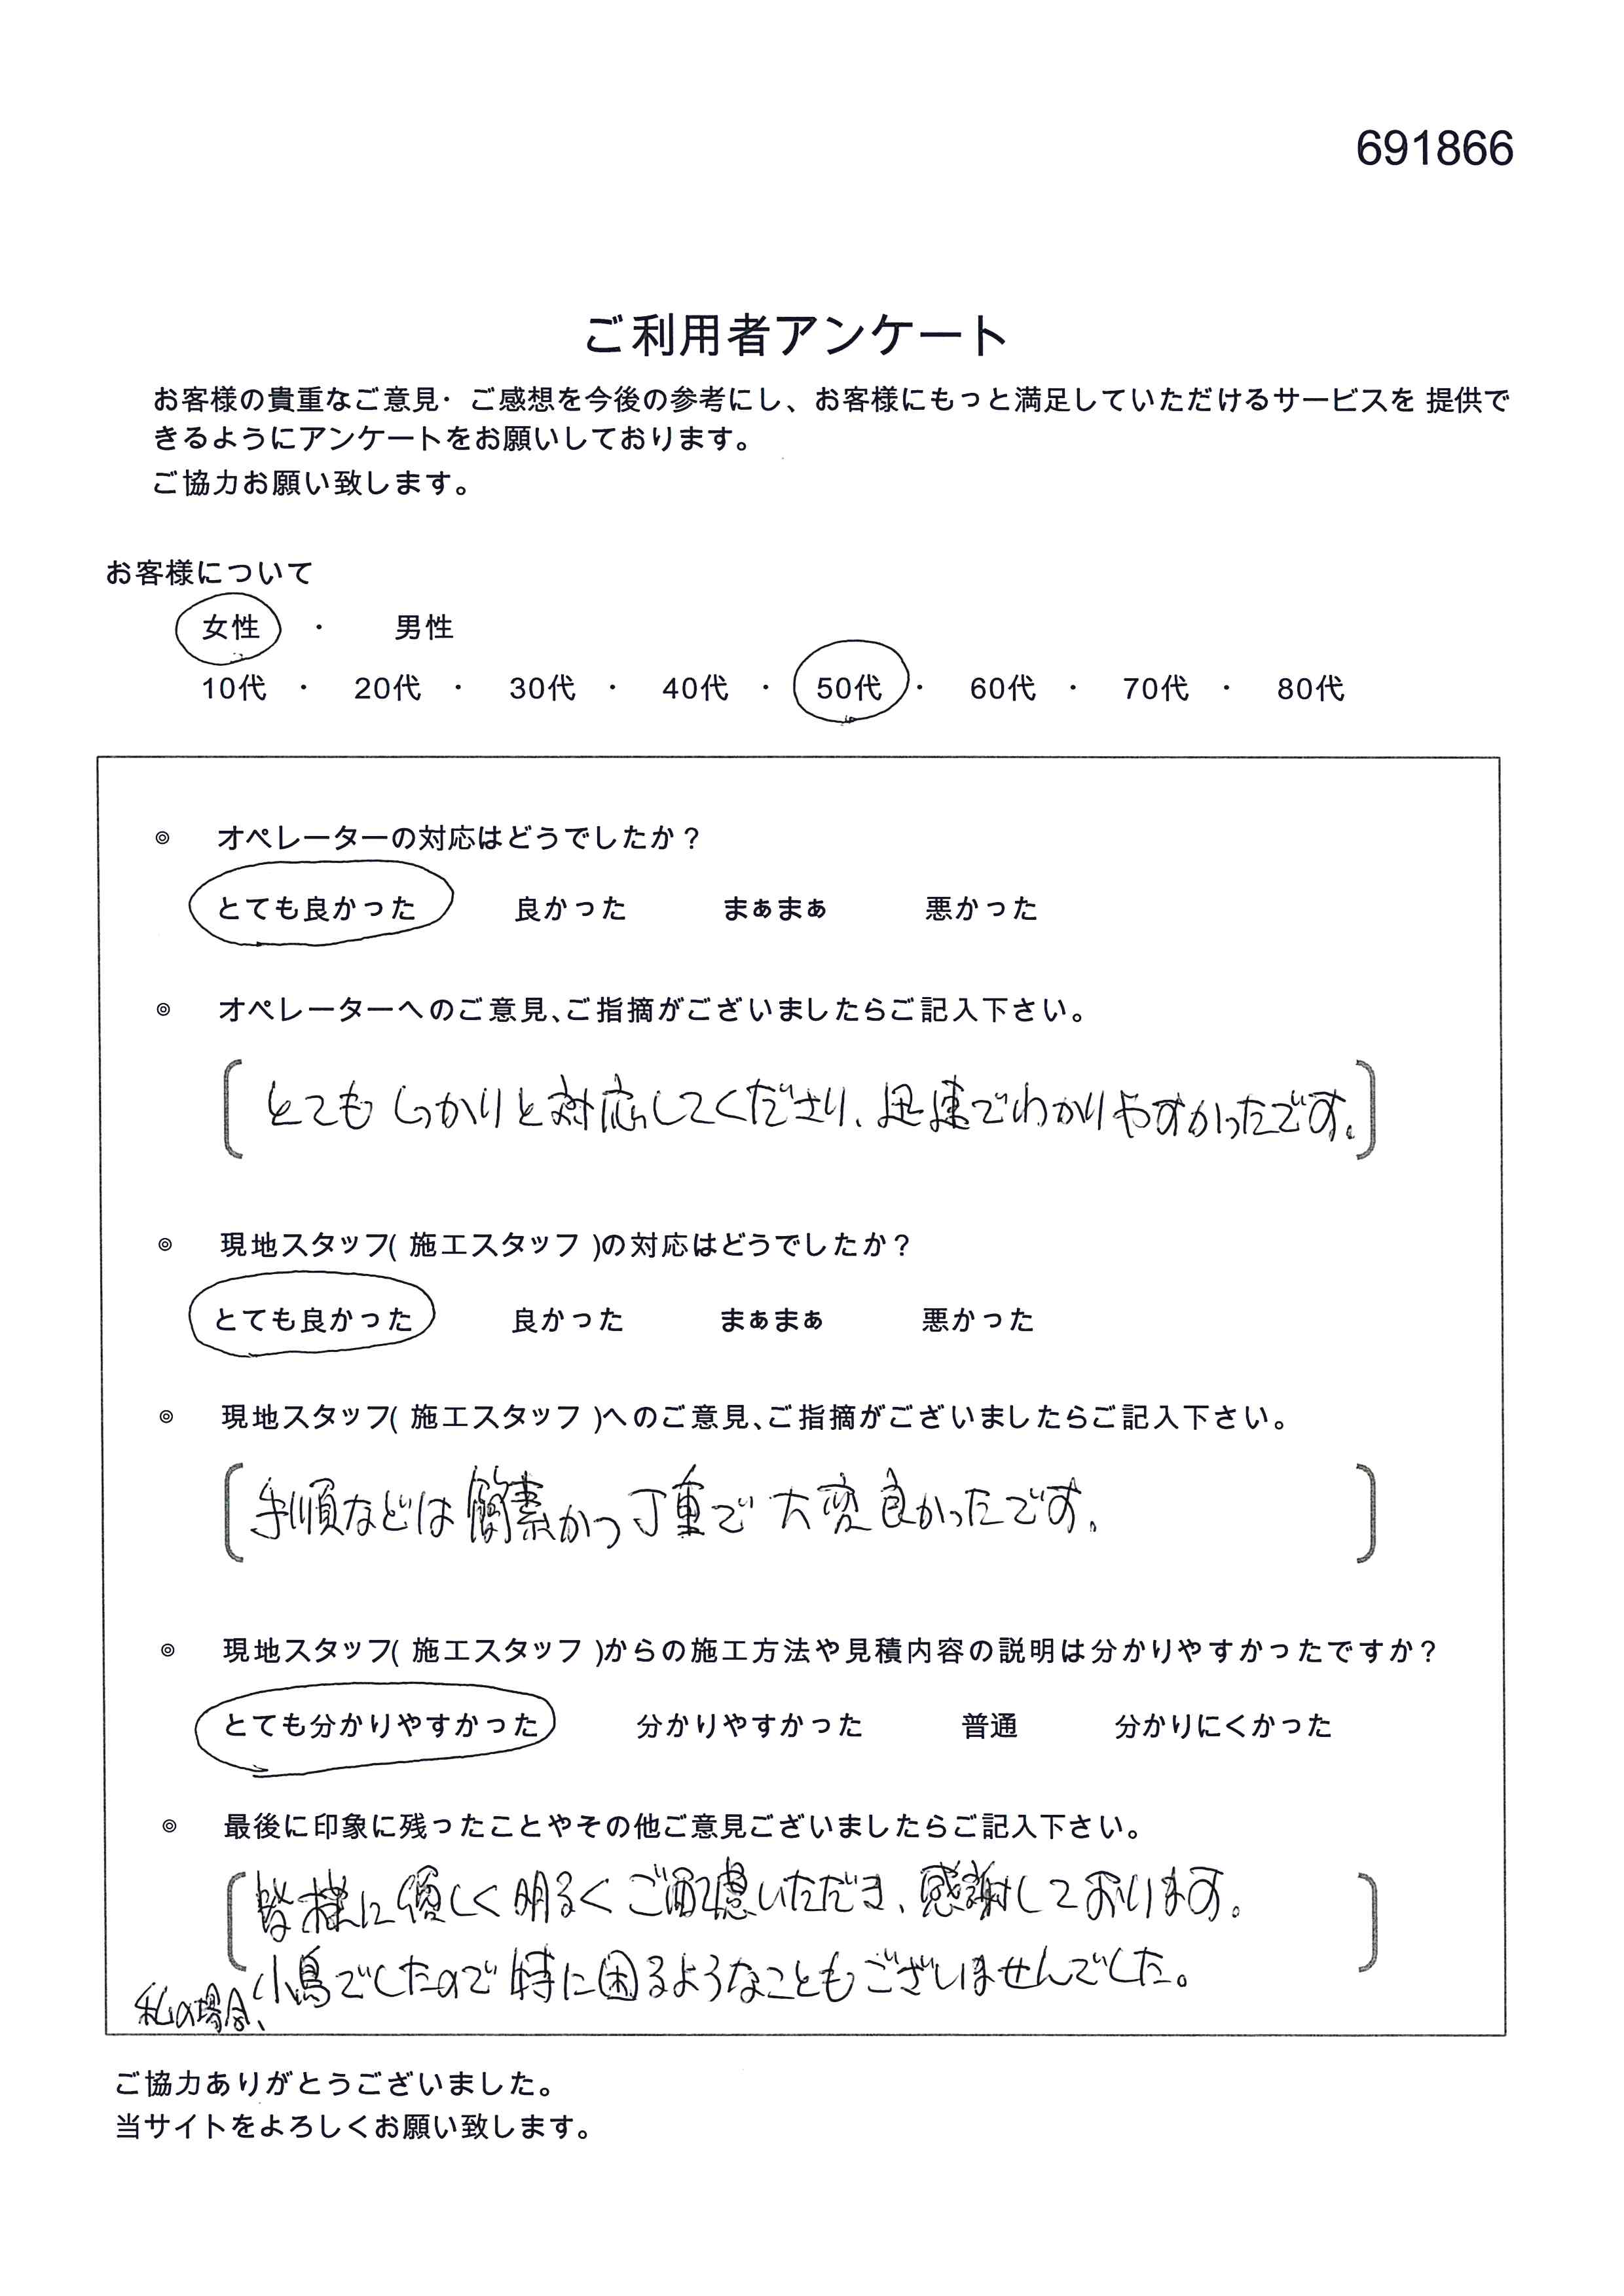 691866
ご利用者アンケート
お客様の貴重なご意見・ご感想を今後の参考にし、お客様にもっと満足していただけるサービスを 提供で
きるようにアンケートをお願いしております。
ご協力お願い致します。
お客様について
女性 ・ 男性
10代 ・ 20代 ・ 30代 ・ 40代 ・ 50代 ・ 60代 ・ 70代 ・ 80代
◎ オペレーターの対応はどうでしたか?
とても良かった 良かった まぁまぁ 悪かった
◎ オペレーターへのご意見、ご指摘がございましたらご記入下さい。
とてもしっかりと対応してくださり、迅速でわかりやすかったです。
◎ 現地スタッフ( 施工スタッフ )の対応はどうでしたか?
とても良かった 良かった まぁまぁ 悪かった
◎ 現地スタッフ( 施工スタッフ )へのご意見、ご指摘がございましたらご記入下さい。
手順などは簡素かつ丁重で大変良かったです。
◎ 現地スタッフ( 施工スタッフ )からの施工方法や見積内容の説明は分かりやすかったですか?
とても分かりやすかった 分かりやすかった 普通 分かりにくかった
◎ 最後に印象に残ったことやその他ご意見ございましたらご記入下さい。
皆様に優しく明るくご配慮いただき、感謝しております。
私の場合、小鳥でしたので特に困るようなこともございませんでした。
ご協力ありがとうございました。
当サイトをよろしくお願い致します。